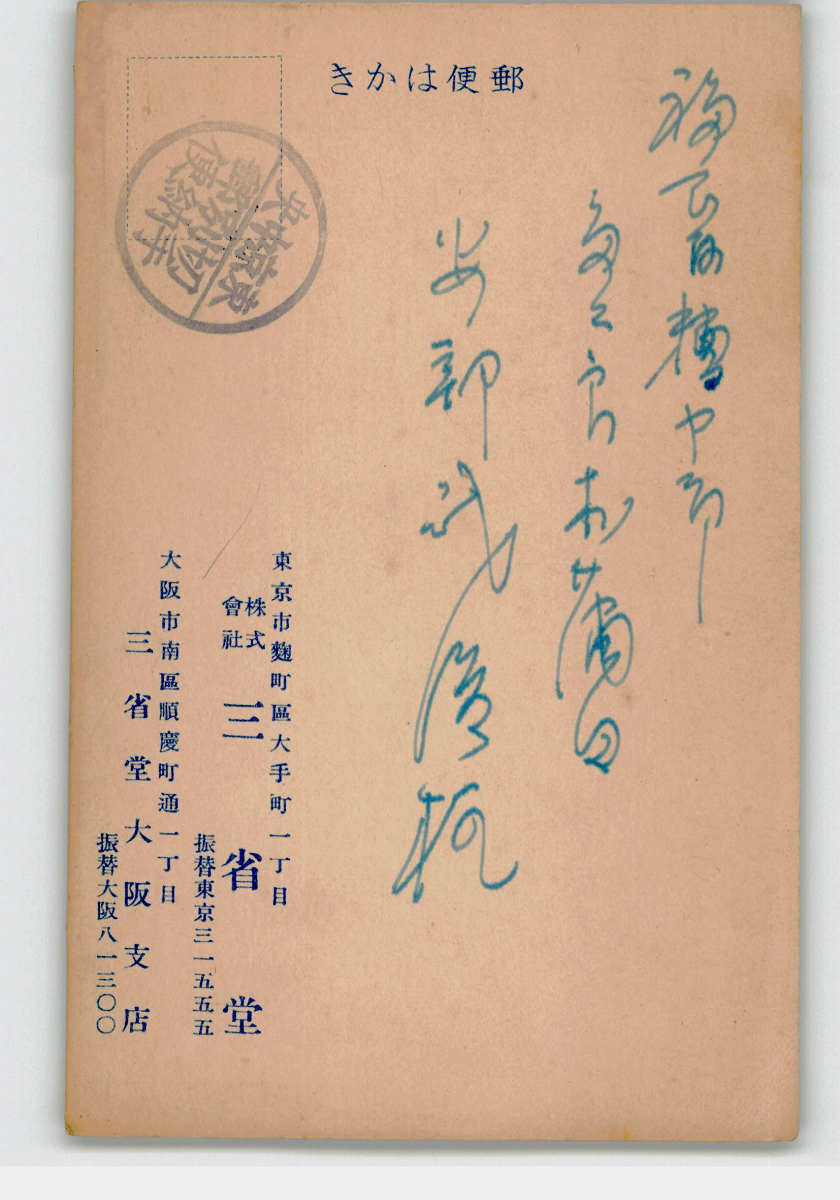 郵便はかき
福岡縣糟や郡
多々良村蒲田
安部武
東京市麴町區大手町一丁目
株式會社
三省堂
振替東京三一五五五
大阪市南區順慶町通一丁目
三省堂大阪支店
振替大阪八一三〇〇